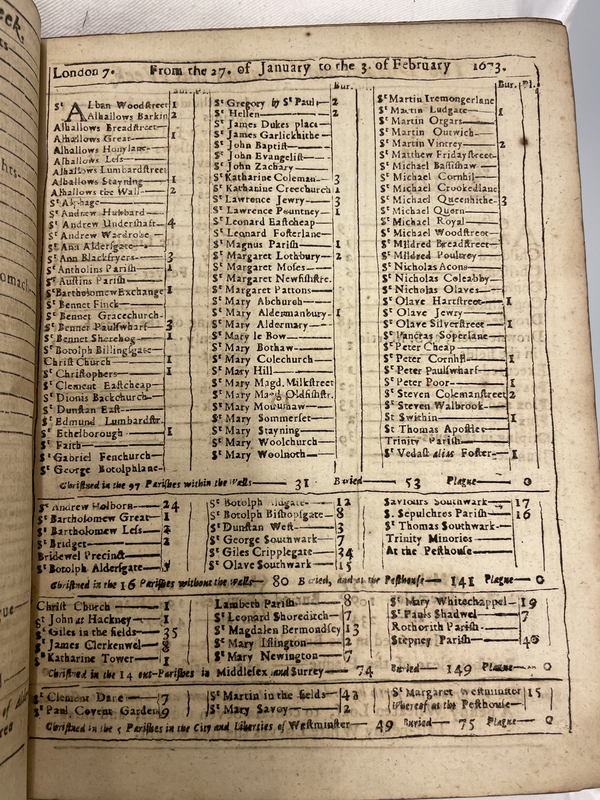 London 7. From the 27. of January to the 3. of February 1673.
Bur. Pl.
St Alban Woodstreet 1
Alhallows Barkin 2
Alhallows Breadstreet
Alhallows Great 1
Alhallows Honylane
Alhallows Less
Alhallows Lumbardstreet
Alhallows Stayning 1
Alhallows the Wall 2
St Alphage
St Andrew Hubbard
St Andrew Undershaft 4
St Andrew Wardrobe
St Ann Aldersgate
St Ann Blackfryers 3
St Antholins Parish 1
St Austins Parish
St Bartholomew Exchange 1
St Bennet Finck
St Bennet Gracechurch
St Bennet Paulswharf 3
St Bennet Sherehog 1
St Botolph Billingsgate
Christ Church 1
St Christophers 1
St Clement Eastcheap
St Dionis Backchurch
St Dunstan East
St Edmund Lumbardstr.
St Ethelborough 1
St Faith
St Gabriel Fenchurch
St George Botolphlane
Bur.
St Gregory by St Paul 2
St Hellen 2
St James Dukes place
St James Garlickhithe
St John Baptist
St John Evangelist
St John Zachary
St Katharine Coleman 3
St Katharine Creechurch 1
St Lawrence Jewry 3
St Lawrence Pountney 1
St Leonard Eastcheap
St Leonard Fosterlane
St Magnus Parish 1
St Margaret Lothbury 2
St Margaret Moses
St Margaret Newfishstre.
St Margaret Pattons
St Mary Abchurch
St Mary Aldermanbury 1
St Mary Aldermary
St Mary le Bow
St Mary Bothaw
St Mary Colechurch
St Mary Hill
St Mary Magd. Milkstreet
St Mary Magd Oldfishstr.
St Mary Mounthaw
St Mary Sommerset
St Mary Stayning
St Mary Woolchurch
St Mary Woolnoth
Bur. Pl.
St Martin Iremongerlane
St Martin Ludgate 1
St Martin Orgars
St Martin Outwich
St Martin Vintrey 2
St Matthew Fridaystreet
St Michael Bassishaw
St Michael Cornhil
St Michael Crookedlane
St Michael Queenhithe 3
St Michael Quern
St Michael Royal
St Michael Woodstreet
St Mildred Breadstreet
St Mildred Poultrey
St Nicholas Acons
St Nicholas Coleabby
St Nicholas Olaves
St Olave Hartstreet 1
St Olave Jewry
St Olave Silverstreet 1
St Pancras Soperlane
St Peter Cheap
St Peter Cornhil 1
St Peter Paulswharf
St Peter Poor 1
St Steven Colemanstreet 2
St Steven Walbrook
St Swithin 1
St Thomas Apostles
Trinity Parish
St Vedast alias Foster 1
Christned in the 97 Parishes within the Walls 31 Buried 53 Plague 0
St Andrew Holborn 24
St Bartholomew Great 1
St Bartholomew Less 2
St Bridget 2
Bridewel Precinct
St Botolph Aldersgate
St Botolph Aldgate 12
St Botolph Bishopsgate 8
St Dunstan West 3
St George Southwark 7
St Giles Cripplegate 34
St Olave Southwark 15
Saviours Southwark 17
S. Sepulchres Parish 16
St Thomas Southwark
Trinity Minories
At the Pesthouse
Christned in the 16 Parishes without the Walls 80 Buried, and at the Pesthouse 141 Plague 0
Christ Church 1
St John at Hackney 1
St Giles in the fields 35
St James Clerkenwel 8
St Katharine Tower 1
Lambeth Parish 8
St Leonard Shoreditch 7
St Magdalen Bermondsey 13
St Mary Islington 2
St Mary Newington 7
St Mary Whitechappel 19
St Pauls Shadwel 7
Rothorith Parish
Stepney Parish
Christned in the 14 out-Parishes in Middlesex and Surrey 74 Buried 149 Plague 0
St Clement Dane 7
St Paul Covent Garden 9
St Martin in the fields 42
St Mary Savoy 2
St Margaret Westminster 15
Whereof at the Pesthouse
Christned in the 5 Parishes in the City and Liberties of Westminster 49 Buried 75 Plague 0